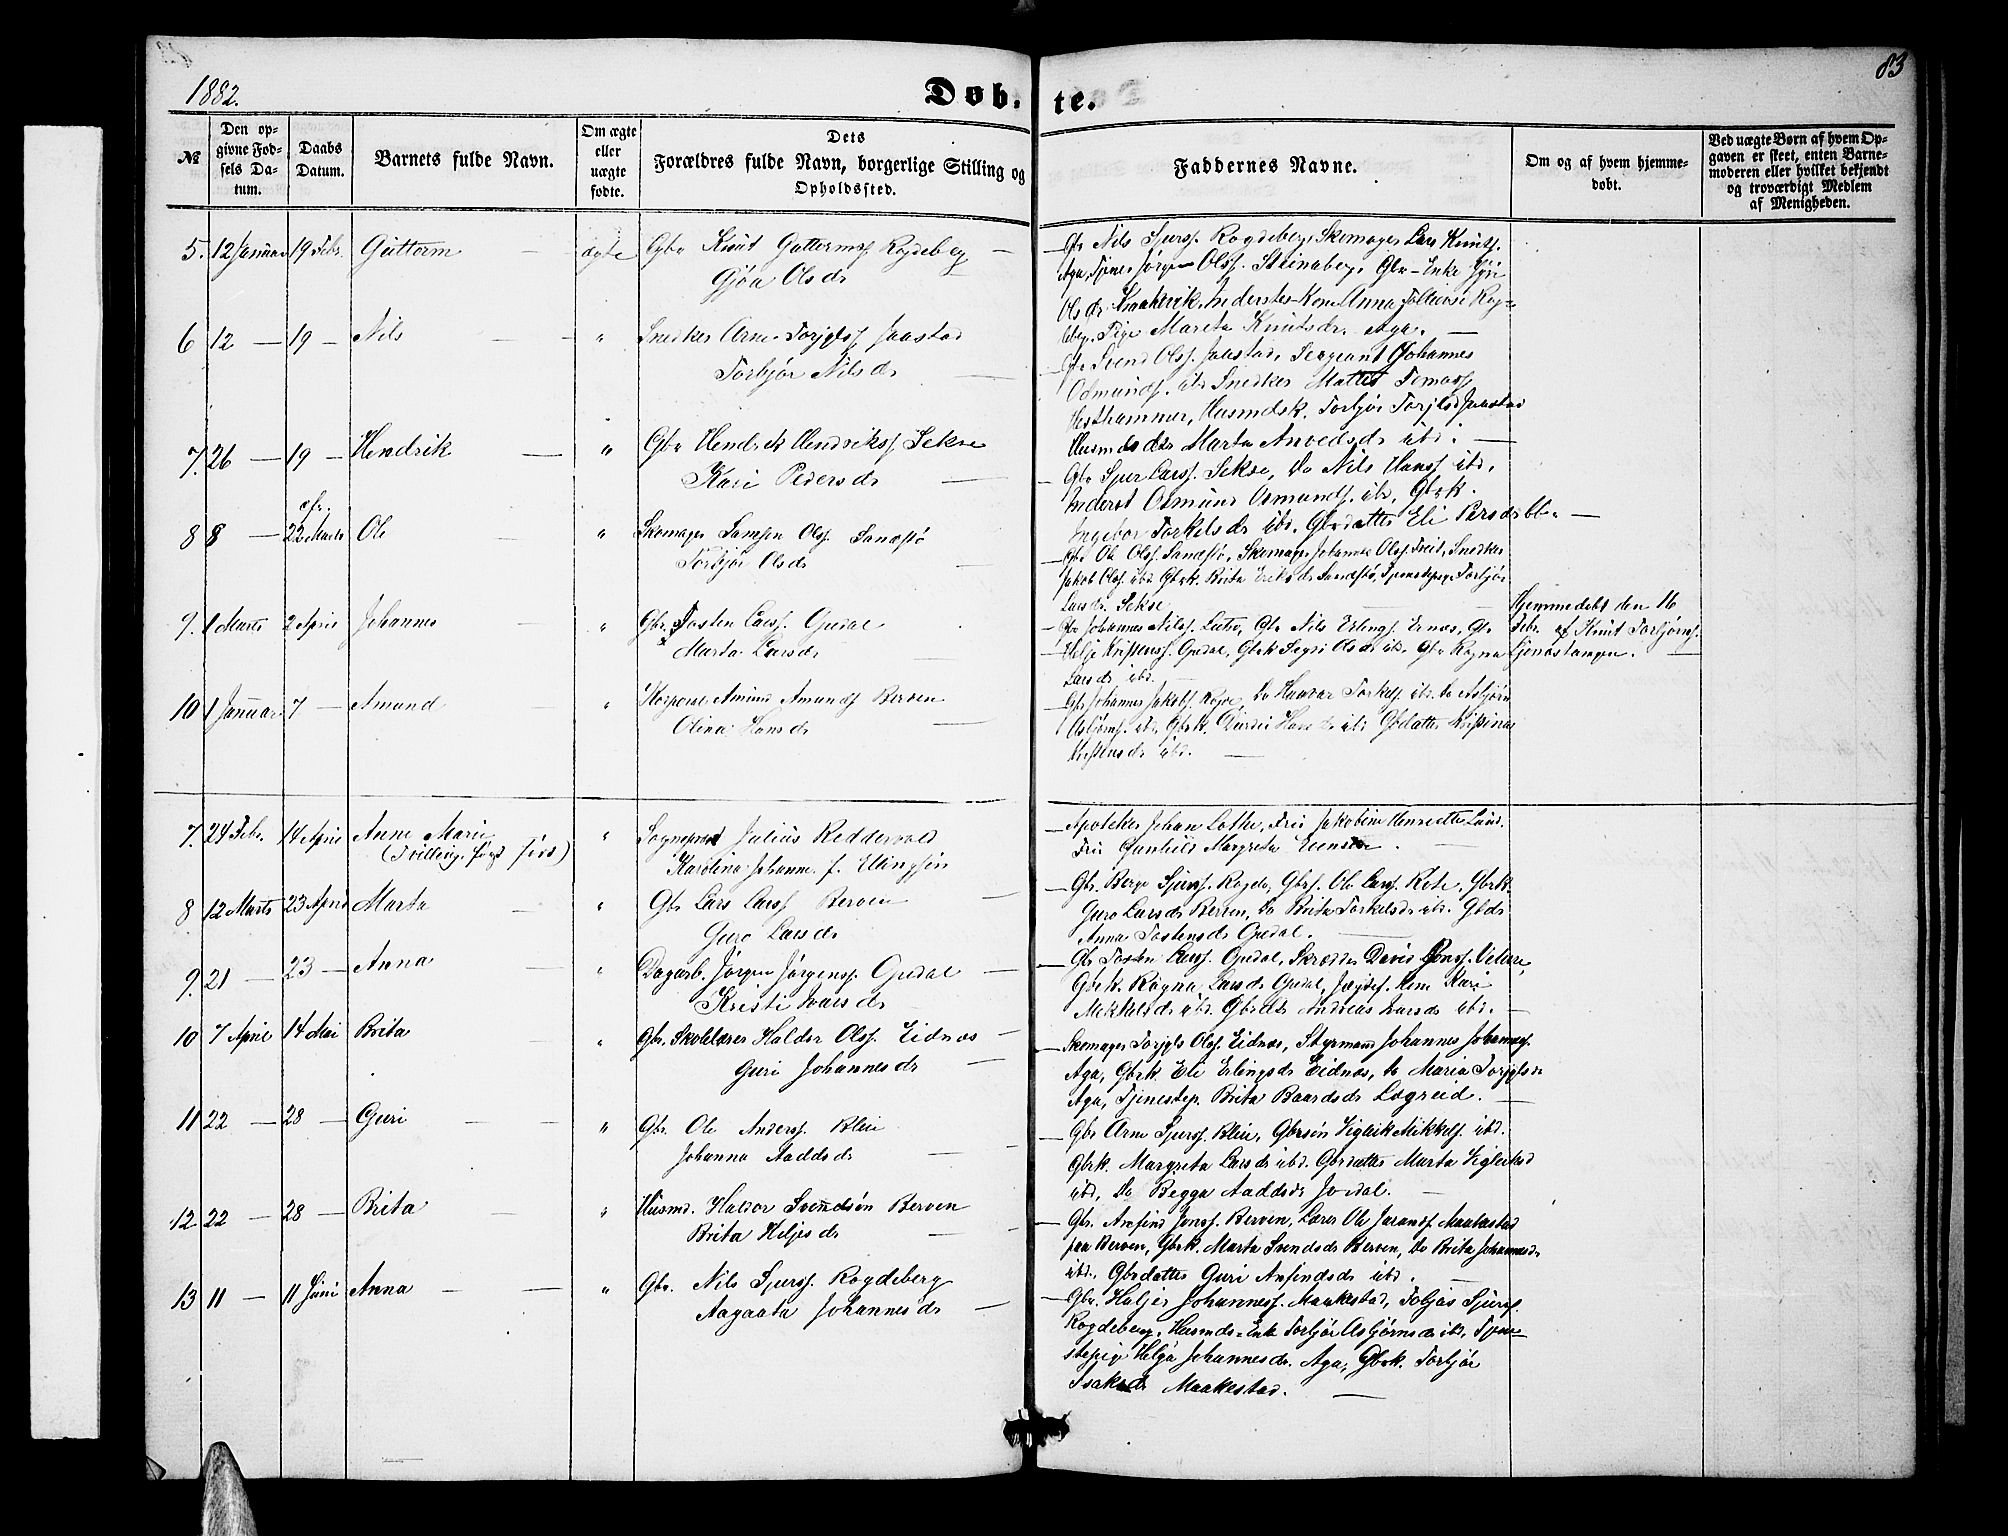 1882.
Døb.
te.
83
№
Den op-
givne Fød-
sels Da-
tum.
Daabs
Datum.
Barnets fulde Navn.
Om ægte
eller
uægte
fødte.
Dets
Forældres fulde Navn, borgerlige Stilling og
Opholdssted.
Faddernes Navne.
Om og af hvem hjemme-
døbt.
Ved uægte Børn af hvem Op-
gaven er skeet, enten Barne-
moderen eller hvilket bekjendt
og troværdigt Medlem
af Menigheden.
5. 12 Januar 19 Febr. Guttorm — ægte Gbr Knut Guttormss Rogdeberg —
Gjøa Olsdr
Gbr Nils Sjurss. Rogdeberg, Skomager Lars Knutss.
Aga, Tjener Jørgen Olss. Steinaberg, Gbr-Enke
Olsdr. Kraakevik, Inderstes-Kone Anna
Pige Marita Knutsdr. Aga. —
6 12 — 19 — Nils — " Snedker Arne Torgjlss Jaastad
Torbjør Nilsdr —
Svend Olss. Jaastad, Sergeant Johannes
Odmunds. ibd Snedker Tomass
Hesthammer, Husmdsk. Torbjør Torjlsd Jaastad
Marta ibd. —
7. 26 — 19 — Hendrik — " Gbr Hendrik Hendrikss Sekse
Kari Pedersdr —
Gbr Sjur Larss. Sekse, Do Nils Hanss ibd.
Inderst Osmund Osmunds. ibd, Gbrk.
Ingebor Torkelsdr ibd. Gbrdatter Eli Persdr ibd. —
8 8 — 22 Marts Ole — " Skomager Samson Olss. Sandstø
Torbjør Olsdr —
Gbr Ole Olss. Sandstø, Skomager Johannes Olss Freit, Snedker
Jakob Olss. ibd Gbrk. Brita Eriksdr Sandstø, Tjenstepige Torbjør
Larsdr. Sekse
9. 1 Marts 2 April Johannes — " Gbr. Tosten Larss. Opedal
Marta Larsdr —
Gbr Johannes Nilss. Lutro, Gbr Nils Erlings. Ernæs, Gbr
Helje Kristens. Opedal, Gbrk Sygni Olsdr ibd. Gbr Ragna
Larsdr ibd. —
Hjemmedøbt den 16
Febr. af Knut Torbjørns.
Tjenestampen. —
10 1 Januar 7 — Amund — " Korporal Amund Amunds Berven
Olina Hansdr —
Gbr Johannes Jakobs. Rogde, Do Haavar Torkels. ibd. Do Asbjørn
Asbjørns. ibd, Gbrk. Durdei ibd Gbdatter Kristina
ibd. —
7. 24 Febr. 14 April Anne Marie " Sogneprest Julius Reddervold
(Tvilling, først født)
Karolina Johanne f. Ellingsen
Apoteker Johan Lothe, Frk Jakobine Henriette Lund.
Frk Gunhild Margreta
8 12 Marts 23 April Marta — " Gbr Lars Larss Berven —
Guro Larsdr
Gbr. Berge Sjurss. Rogde, Gbrs. Ole Larss. Rote, Gbrk.
Guro Larsdr Berven, Do Brita Torkelsdr ibd. Gbdr
Anna Tostensdr Opedal. —
9. 21 — 23 — Anna — " Dagarb. Jørgen Jørgenss. Opedal —
Kristi Ivarsdr —
Gbr Tosten Larss. Opedal, Skrædder David Jonss. Velure,
Gbrk. Ragna Larsdr Opedal, Kone Kari
Mikkelsdr ibd. Gbrdtr Andrea Larsdr ibd. —
10 7 April 14 Mai Brita — " Gbr. Skolelærer Haldor Olss. Eidnæs —
Guri Johannesdr —
Skomager Torgjls Olss. Eidnæs, Styrmand Johannes Johanness.
Aga, Gbrk. Eli Erlingsdr Eidnæs, Do Maria Torgjlsdr
Aga, Tjenestep. Brita Baardsdr Lægreid. —
11 22 — 28 — Guri — " Gbr. Ole Anderss. Bleie
Johanna Aaddsdr —
Gbr Arne Sjurss. Bleie, Gbrsøn Viglik Mikkels. ibd.
Gbrk. Margreta Larsdr ibd. Gbrdatter Marta Vigliksd
ibd, Do Begga Aaddsdr Jordal. —
12 22 — 28 — Brita — " Husmd. Haldor Svendsøn Berven
Brita Heljesdr —
Gbr. Arnfind Jonss. Berven, Lærer Ole Jaranss Maakestad
paa Berven, Gbrk. Marta Svendsdr Berven, Do Brita Johannesdr
ibd. Gbrdatter Guri Anfindsdr ibd. —
13 11 — 11 Juni Anna — " Gbr. Nils Sjurss. Rogdeberg
Aagaata Johannesdr —
Gbr. Heljer Johanness. Maakestad, Tobjas Sjurss.
Rogdeberg, Husmds-Enke Torbjør Asbjørnsdr ibd. Tjene-
stepig Helga Johannesdr. Aga, Gbrk. Torbjør
Isaksdr Maakestad. —